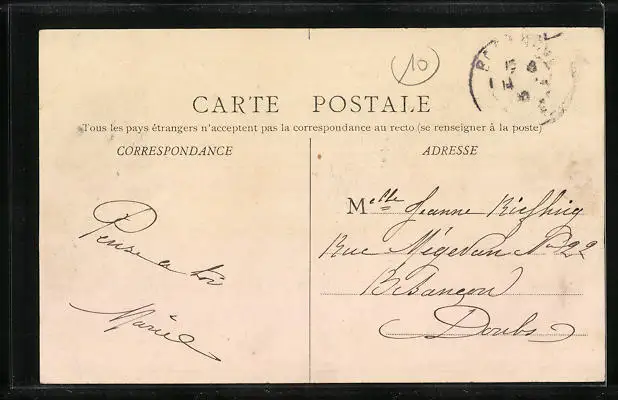 10
CARTE POSTALE
Tous les pays étrangers n'acceptent pas la correspondance au recto (se renseigner à la poste)
CORRESPONDANCE
ADRESSE
Pense a toi
Marie
Melle Jeanne
Rue Mégevan No 22
Besançon
Doubs